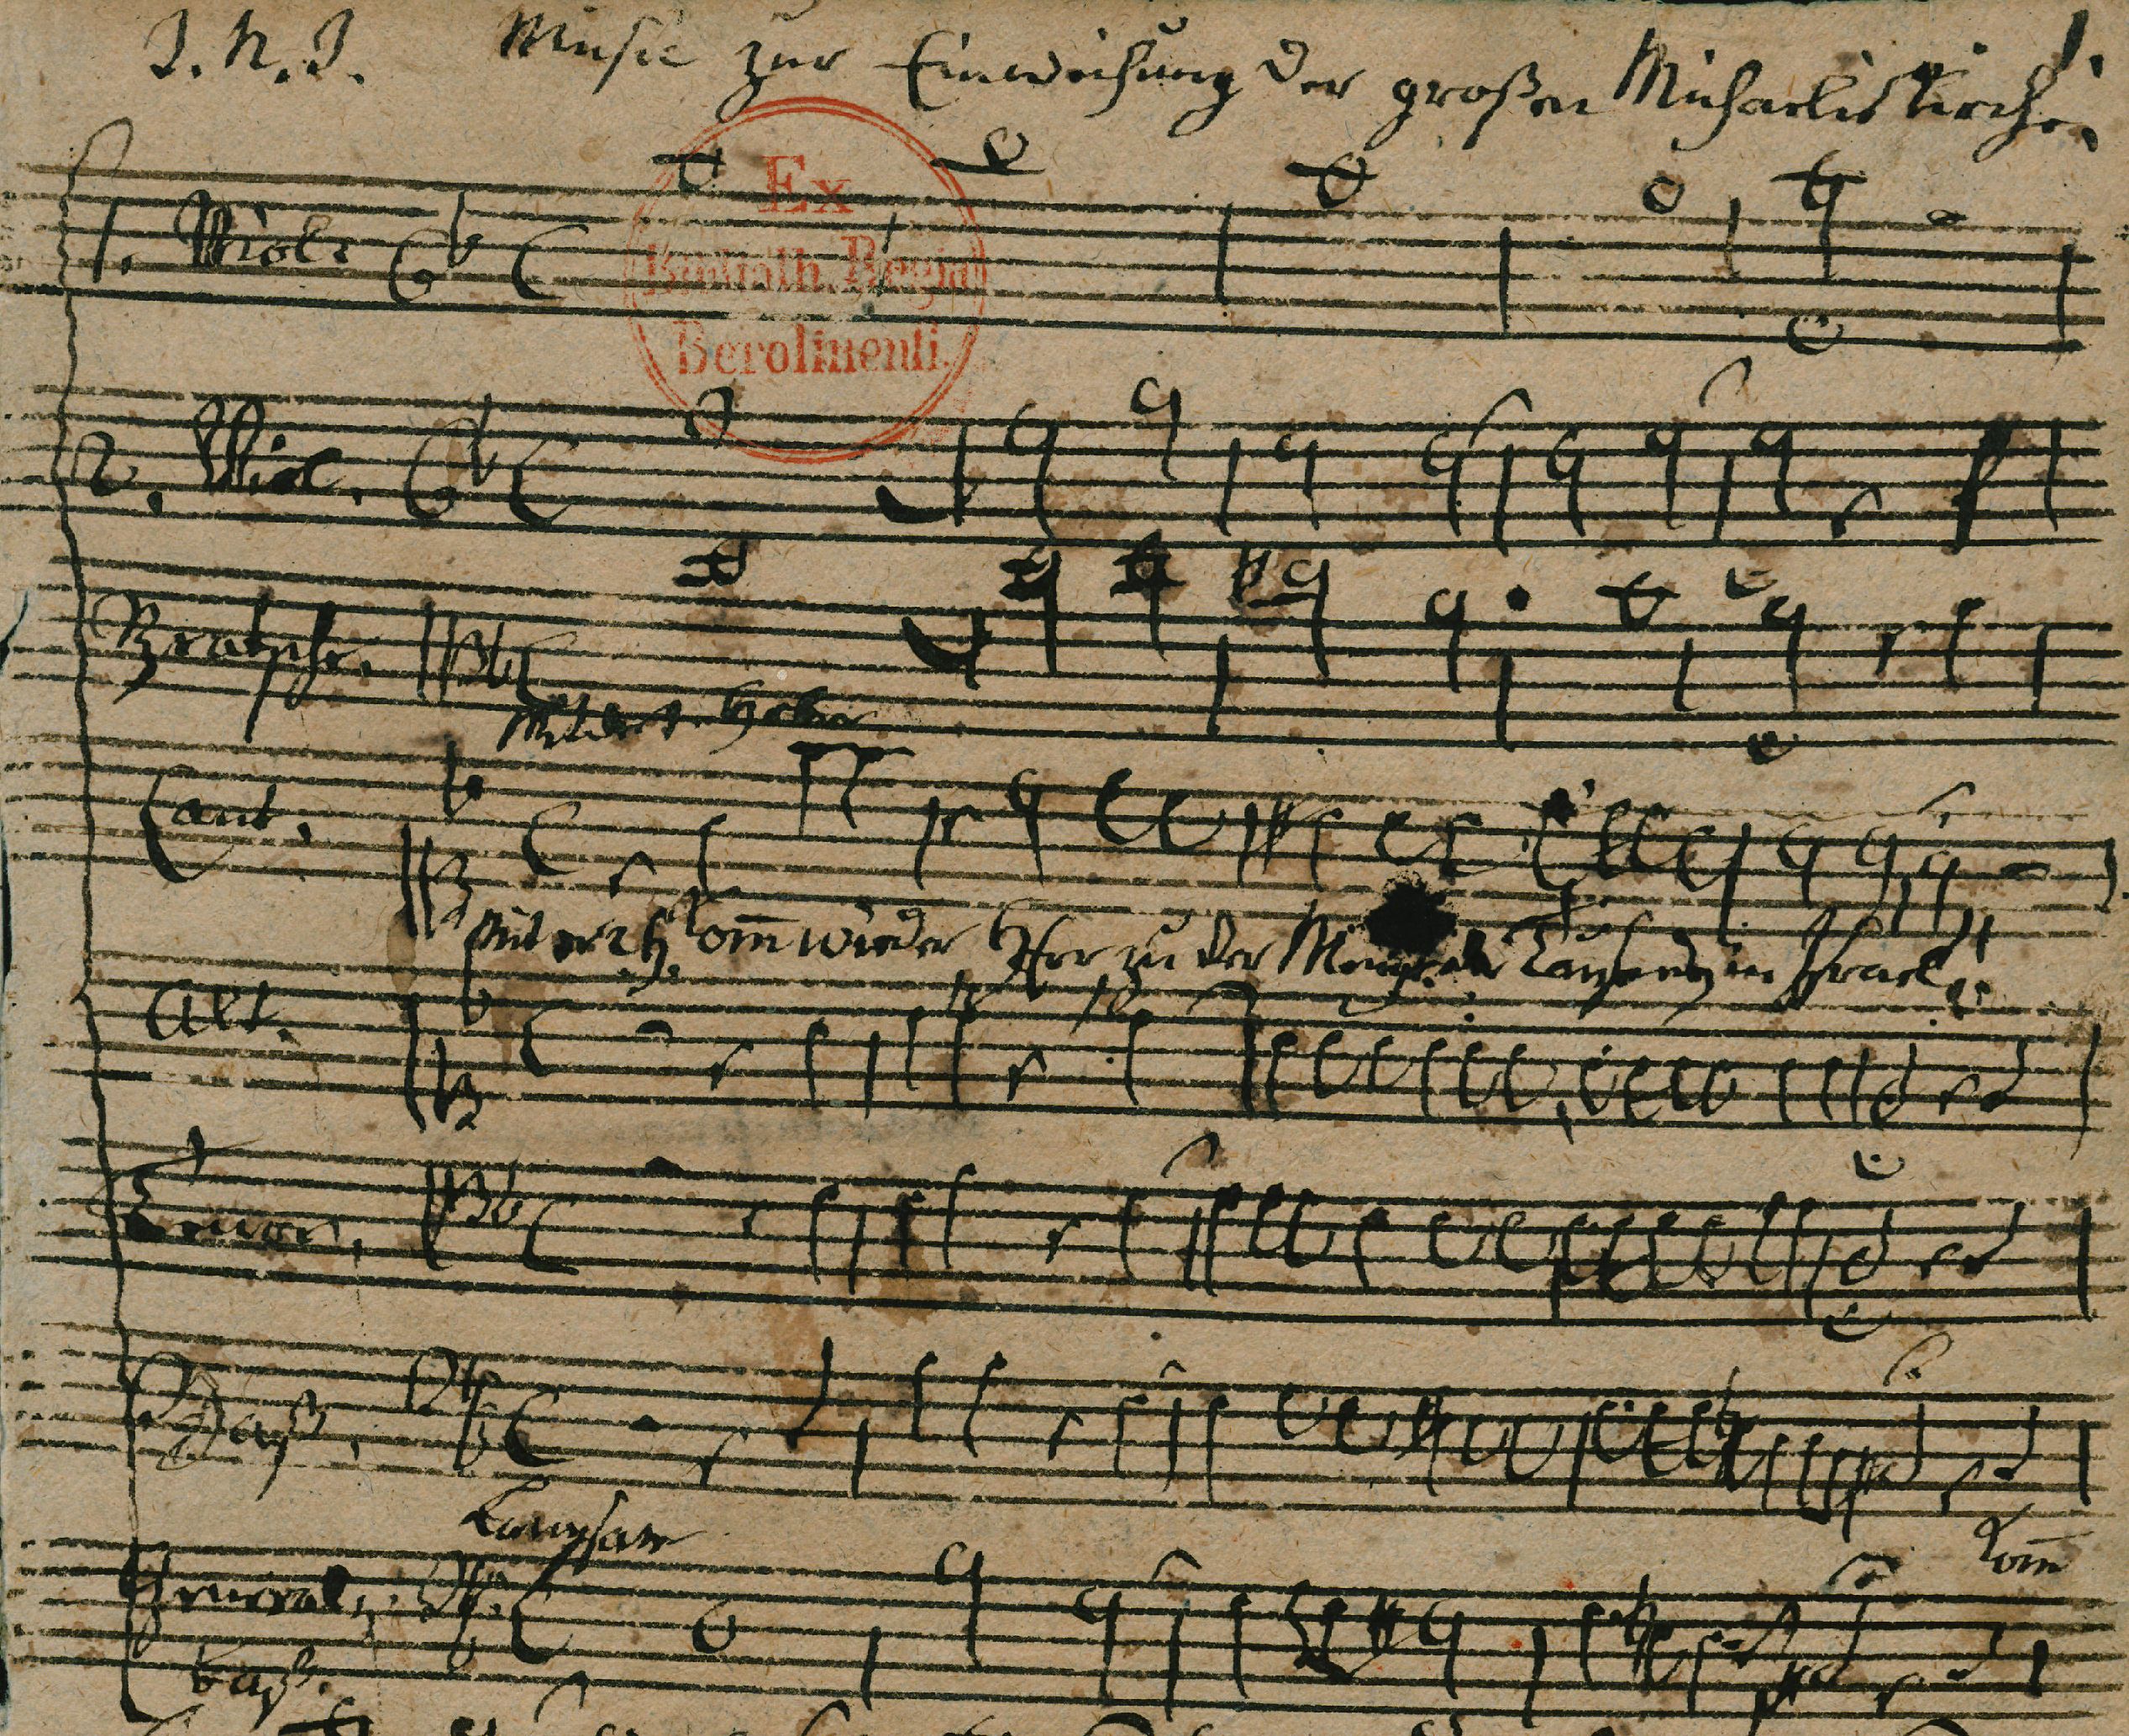 J. N. J. Music zur Einweihung der großen Michaelis Kirche.
Ex
Biblioth. Regia
Berolinenfi.
1. Viol.
2. Viol.
Bratsche.
Cant.
Komm wieder Herr zu der Menge der Tausend in Israel
Alt.
Tenor.
Bass.
Langsam
Komm
General
Bass.